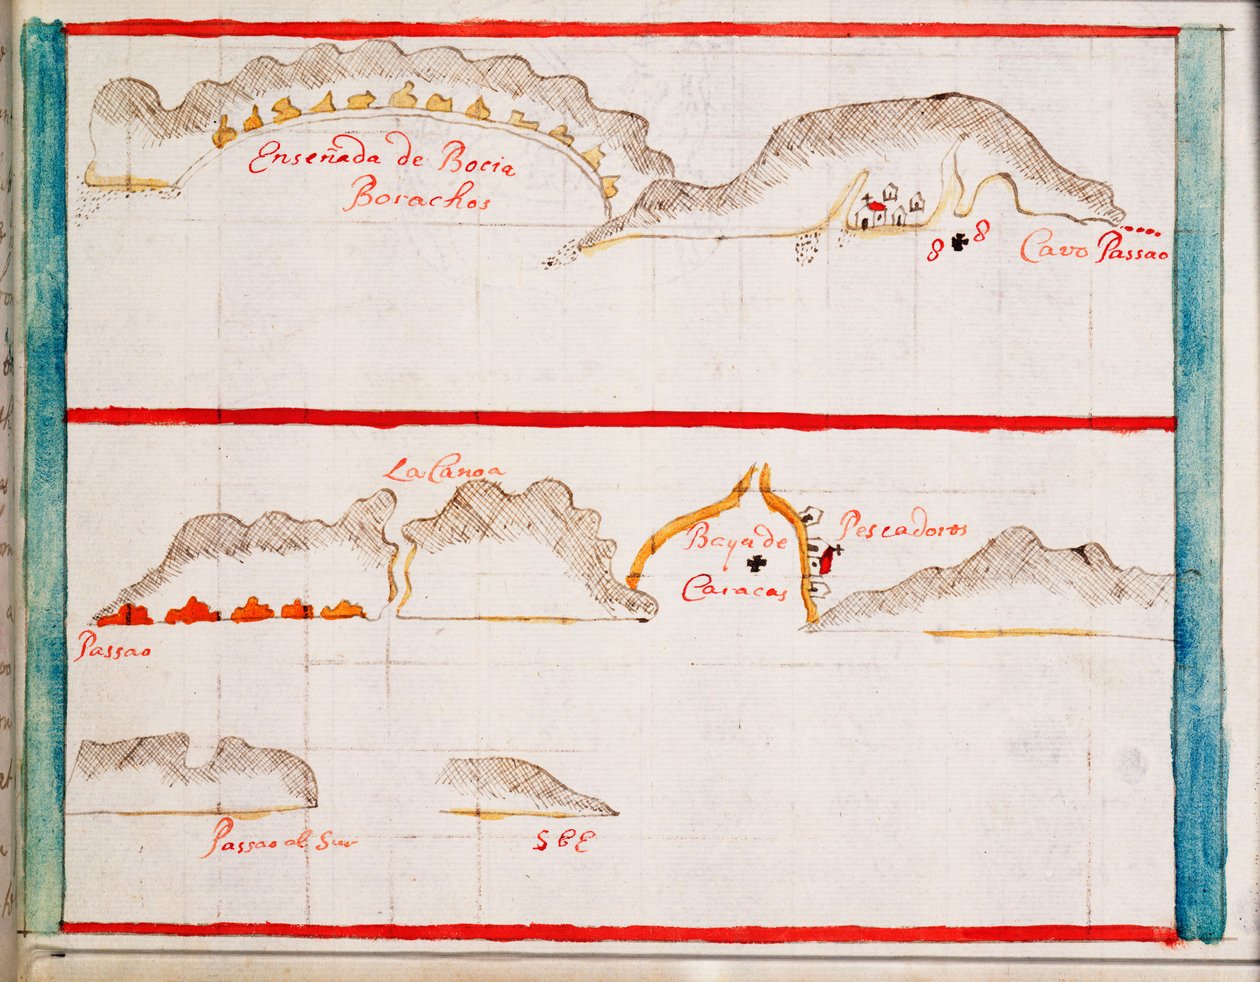 Enseñada de Bocia
Borachos
8 8
Cavo Passao
La Canoa
Baya de
Caracas
Pescadores
Passao
Passao al Sur